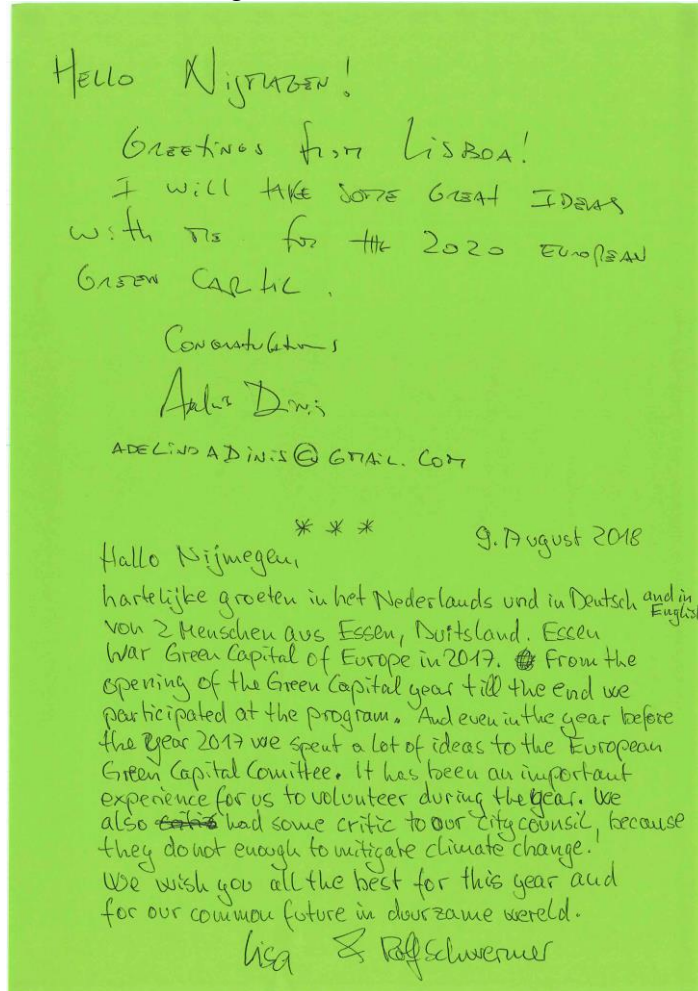 Hello Nijmagen!
Greetings from Lisboa!
I will take some great ideas
with me for the 2020 European
Green Capital.
Congratulations
Dinis
adelinoadinis@gmail.com
* * *
9. August 2018
Hallo Nijmegen,
hartelijke groeten in het Nederlands und in Deutsch and in English
von 2 Menschen aus Essen, Duitsland. Essen
war Green Capital of Europe in 2017. From the
opening of the Green Capital year till the end we
participated at the program. And even in the year before
the year 2017 we spent a lot of ideas to the European
Green Capital Comittee. It has been an important
experience for us to volunteer during the year. We
also had some critic to our city counsil, because
they do not enough to mitigate climate change.
We wish you all the best for this year and
for our common future in duurzame wereld.
Lisa & Rolf Schwermer